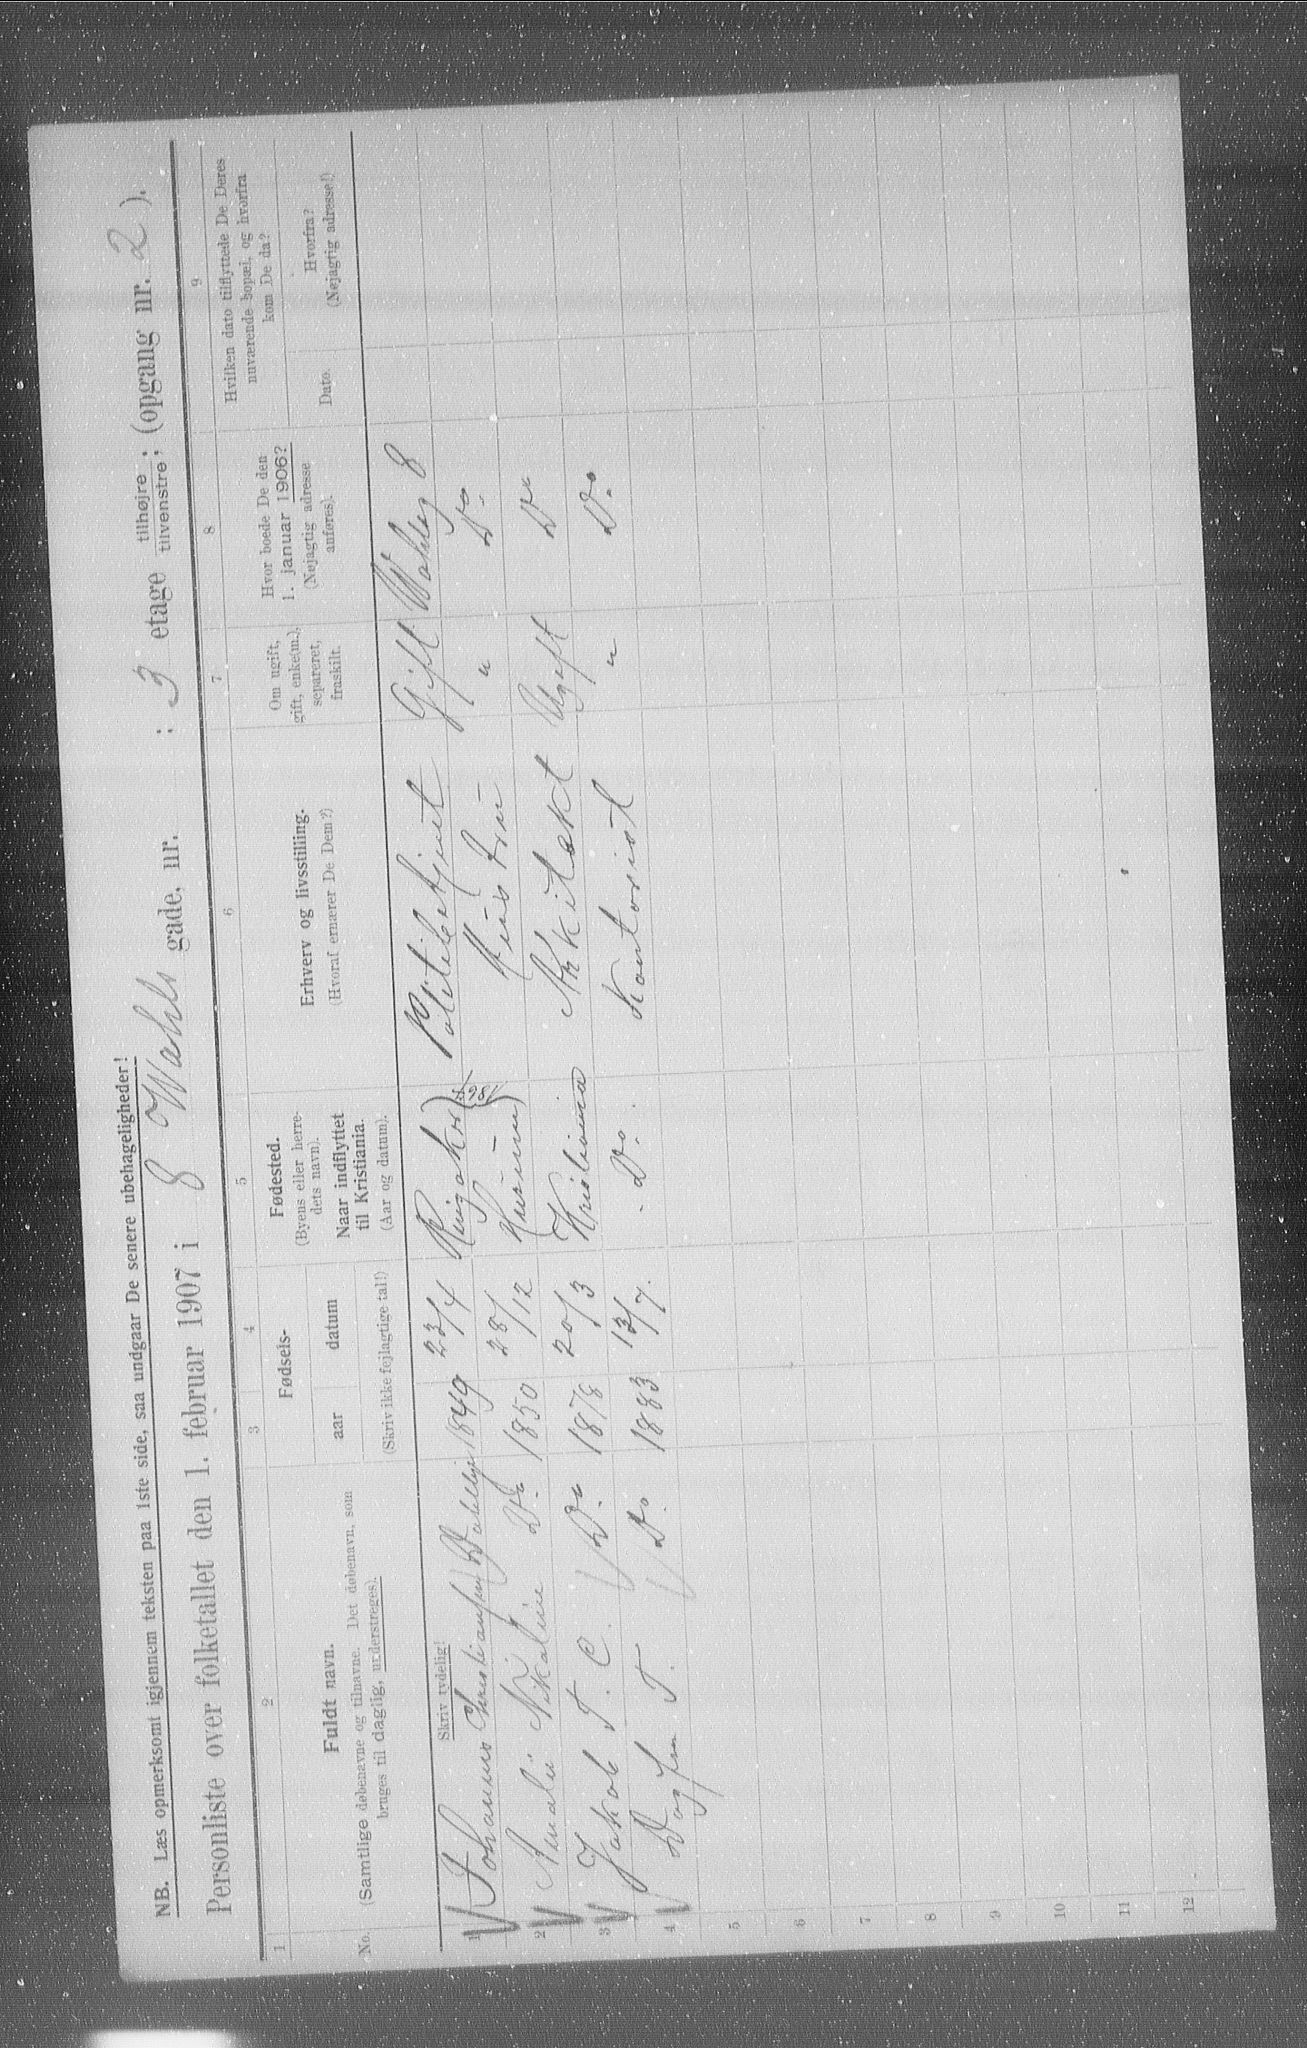 NB. Læs opmerksomt igjennem teksten paa 1ste side, saa undgaar De senere ubehageligheder!
Personliste over folketallet den 1. februar 1907 i 8 Wahls gade, nr. : 3 etage tilhøjre ; tilvenstre ; (opgang nr. 2 ).
1 2 3 4 5 6 7 8 9
No.
Fuldt navn.
(Samtlige døbenavne og tilnavne. Det døbenavn, som
bruges til daglig, understreges).
Fødsels-
aar datum
(Skriv ikke fejlagtige tal!)
Fødested.
(Byens eller herre-
dets navn).
Naar indflyttet
til Kristiania.
(Aar og datum).
Erhverv og livsstilling.
(Hvoraf ernærer De Dem?)
Om ugift,
gift, enke(m.),
separeret,
fraskilt.
Hvor boede De den
1. januar 1906?
(Nøjagtig adresse
anføres).
Hvilken dato tilflyttede De Deres
nuværende bopæl, og hvorfra
kom De da?
Dato.
Hvorfra?
(Nøjagtig adresse!)
Skriv tydelig!
1 Johannes 1849 23/4 Ringsaker Politibetjent Gift 8
2 Amalie Nikoline Do 1850 28/12 Hus Fru " Do
3 Jakob T. C. Do 1878 20/3 Kristiania Arkitekt Ugift Do
4 Dagfin T. Do 1883 13/7 Do. Kontorist " Do
5
6
7
8
9
10
11
12